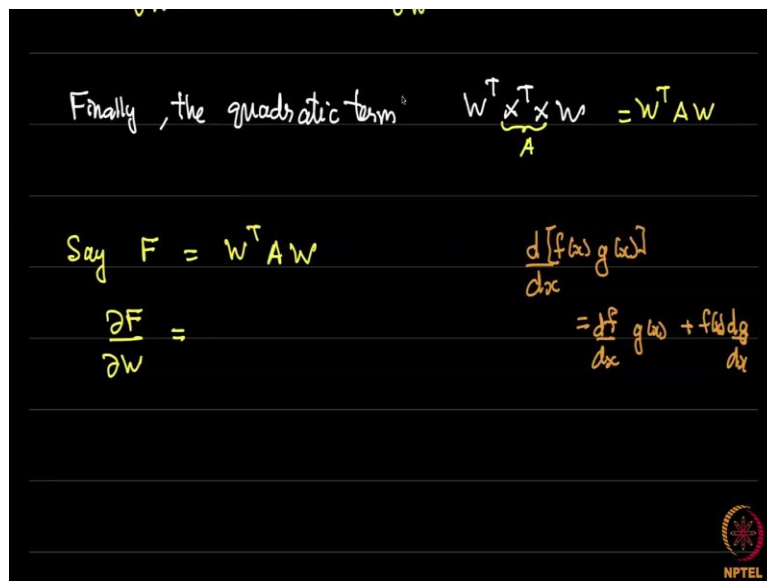 Finally, the quadratic term W^T X^T X W = W^T A W
A
Say F = W^T A W
d[f(x) g(x)]
dx
∂F/∂W =
= df/dx g(x) + f(x) dg/dx
NPTEL